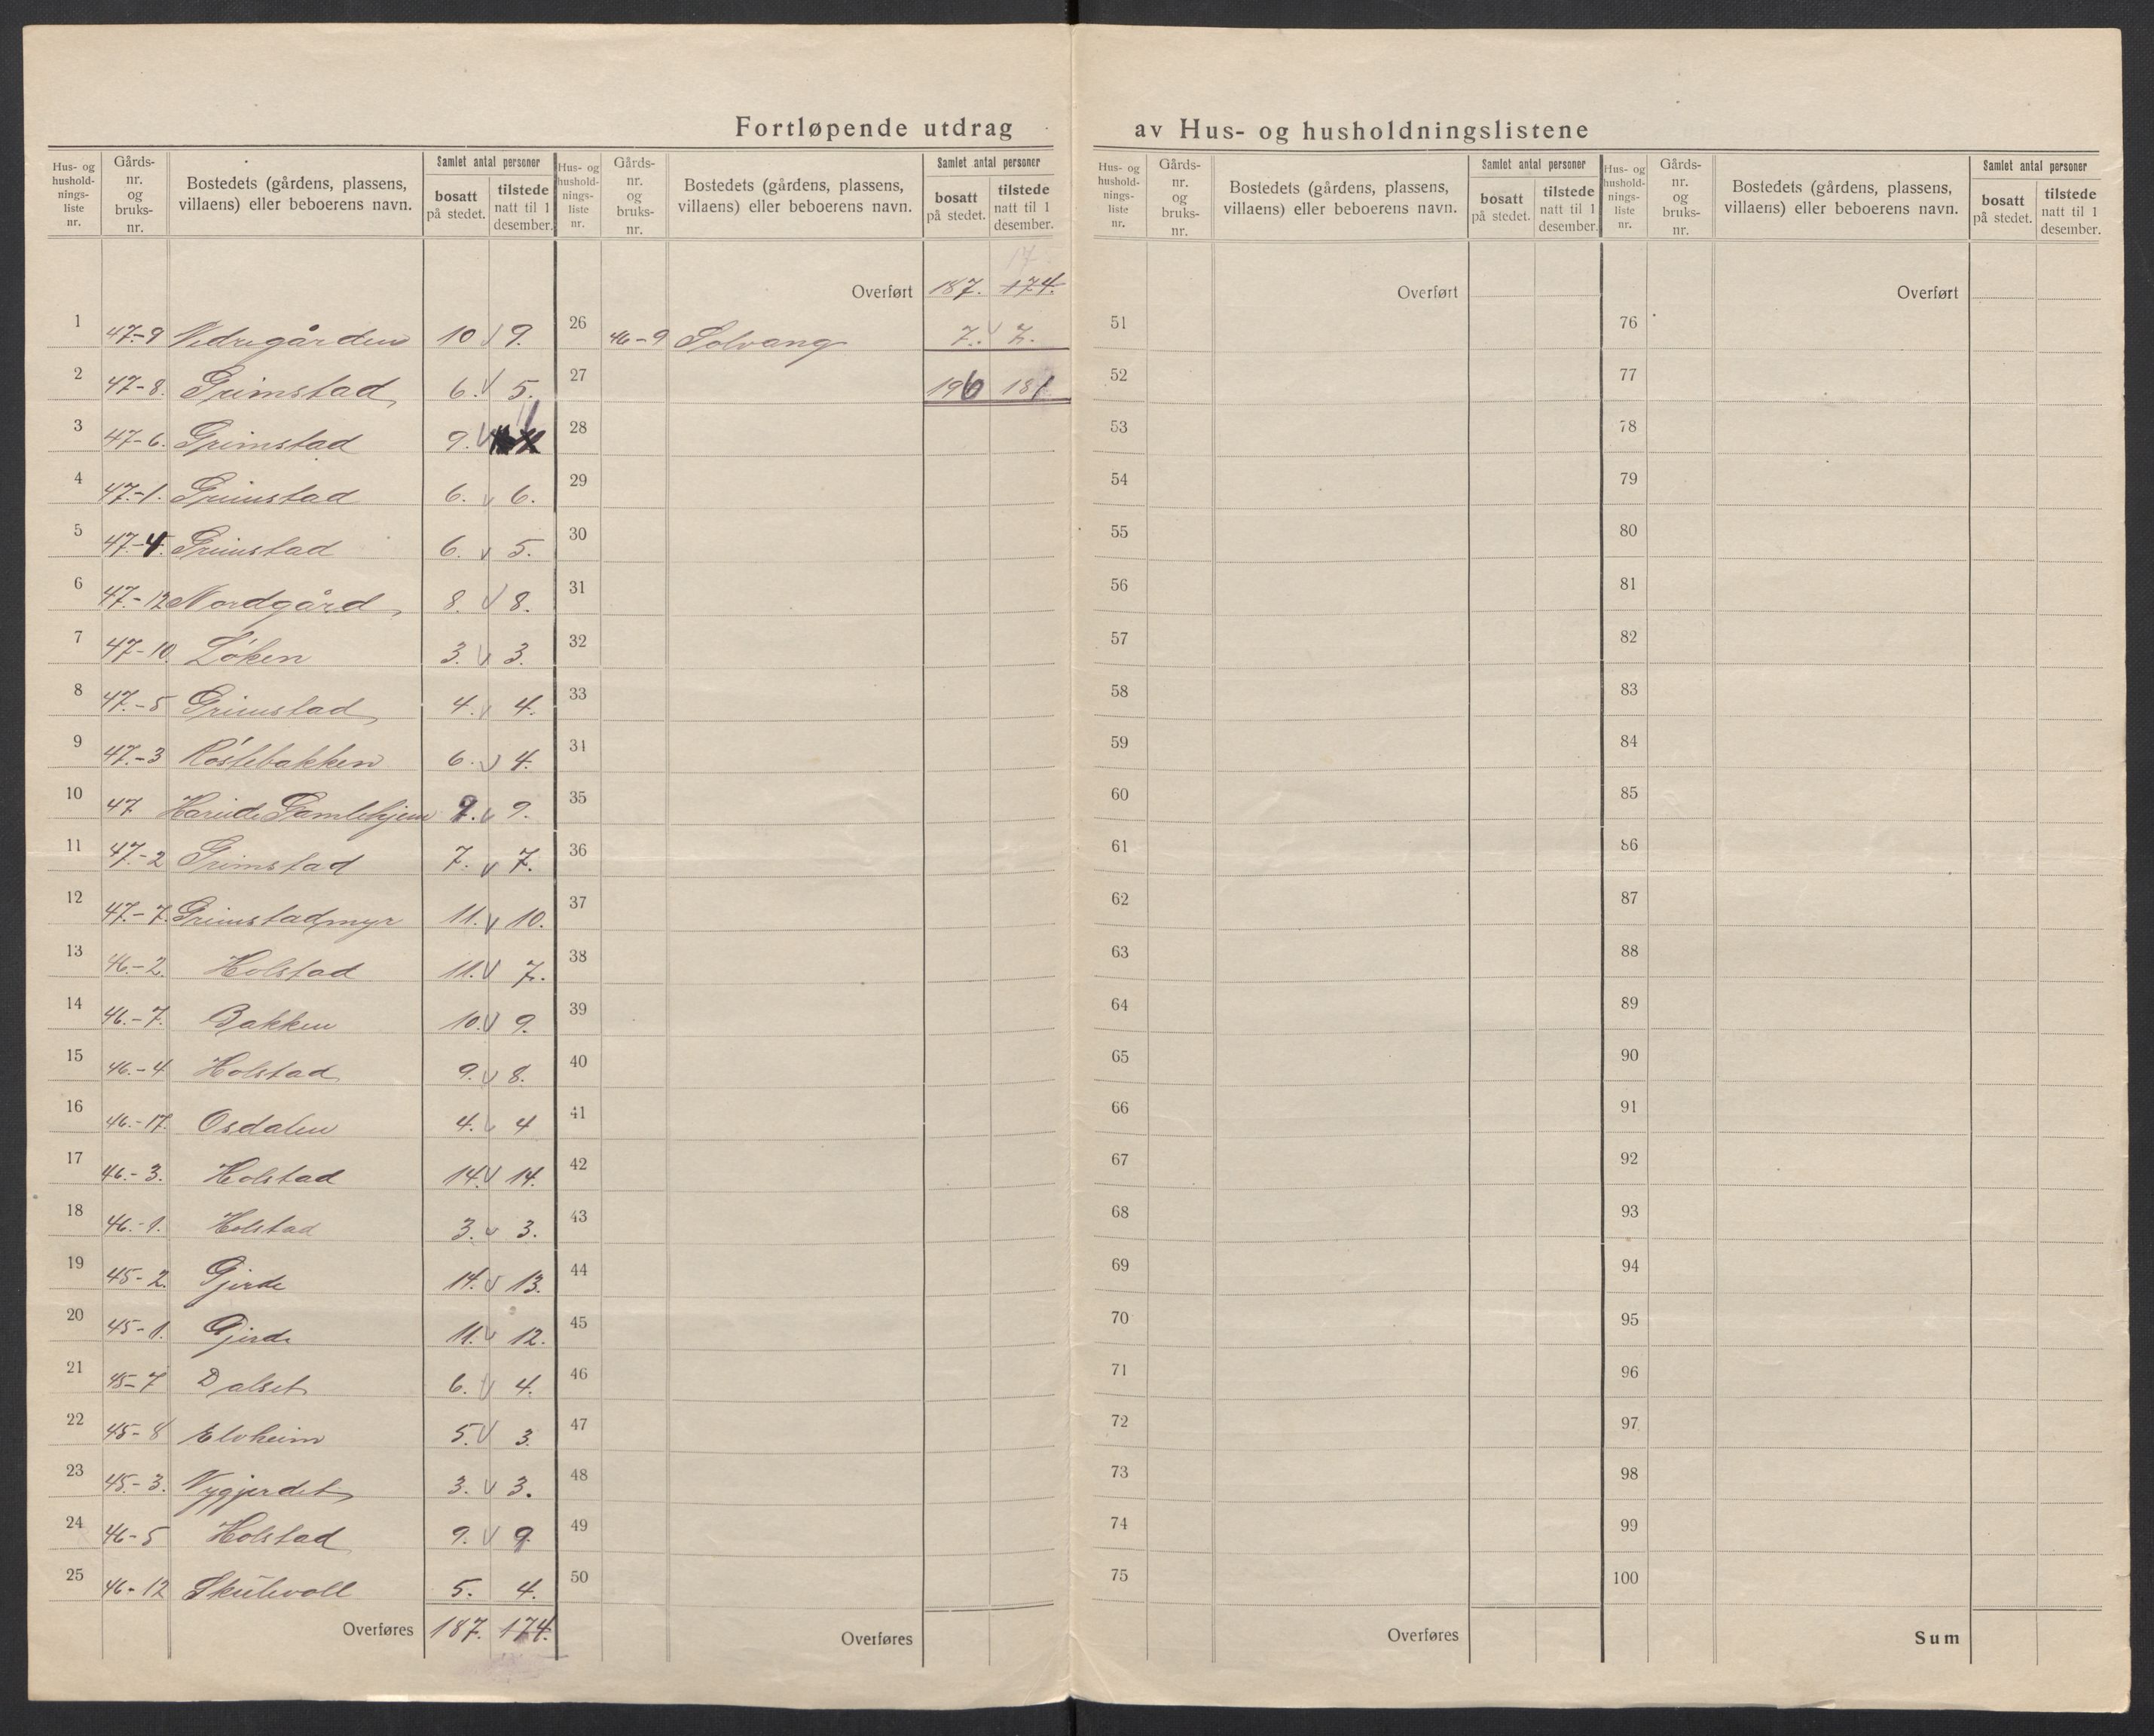 Fortløpende utdrag av Hus- og husholdningslistene
Hus- og hushold- nings- liste nr. | Gårds- nr. og bruks- nr. | Bostedets (gårdens, plassens, villaens) eller beboerens navn. | Samlet antal personer bosatt på stedet. | tilstede natt til 1 desember.
1 47-9 Nedregården 10 v 9.
2 47-8. Grimstad 6. v 5.
3 47-6. Grimstad 9. v 11
4 47-1. Grimstad 6. v 6.
5 47-4. Grimstad 6. v 5.
6 47-12 Nordgård 8. v 8.
7 47-10. Løken 3. v 3.
8 47-5 Grimstad 4. v 4.
9 47-3 Røslebakken 6. v 4.
10 47 Hareide Gamlehjem 9. v 9.
11 47-2 Grimstad 7. v 7.
12 47-7. Grimstadmyr 11. v 10.
13 46-2. Holstad 11. v 7.
14 46-7. Bakken 10. v 9.
15 46-4 Holstad 9. v 8.
16 46-17. Osdalen 4. v 4
17 46-3. Holstad 14. v 14.
18 46-1. Holstad 3. v 3.
19 45-2. Gjerde 14. v 13.
20 45-1. Gjerde 11. v 12.
21 45-7 Dalset 6. v 4.
22 45-8 Elvheim 5. v 3.
23 45-3. Nygjerdet 3. v 3.
24 46-5 Holstad 9. v 9.
25 46-12 Skulevoll 5. 4.
Overføres 187. 174.
Hus- og hushold- nings- liste nr. | Gårds- nr. og bruks- nr. | Bostedets (gårdens, plassens, villaens) eller beboerens navn. | Samlet antal personer bosatt på stedet. | tilstede natt til 1 desember.
17
Overført 187. 174.
26 46-9 Solvang 7. v 7.
27 196 181
28
29
30
31
32
33
31
35
36
37
38
39
40
41
42
43
44
45
46
47
48
49
50
Overføres
Hus- og hushold- nings- liste nr. | Gårds- nr. og bruks- nr. | Bostedets (gårdens, plassens, villaens) eller beboerens navn. | Samlet antal personer bosatt på stedet. | tilstede natt til 1 desember.
Overført
51
52
53
54
55
56
57
58
59
60
61
62
63
64
65
66
67
68
69
70
71
72
73
74
75
Overføres
Hus- og hushold- nings- liste nr. | Gårds- nr. og bruks- nr. | Bostedets (gårdens, plassens, villaens) eller beboerens navn. | Samlet antal personer bosatt på stedet. | tilstede natt til 1 desember.
Overført
76
77
78
79
80
81
82
83
84
85
86
87
88
89
90
91
92
93
94
95
96
97
98
99
100
Sum